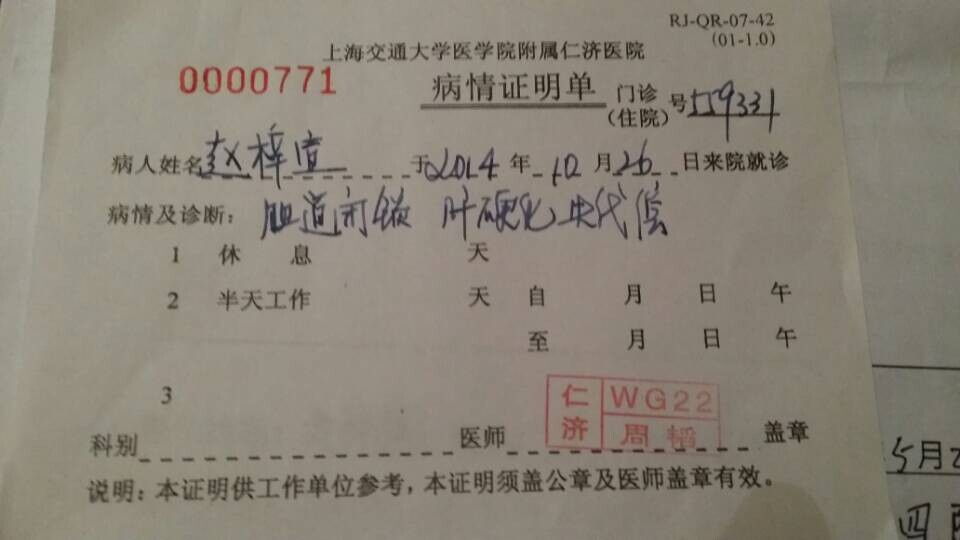 RJ-QR-07-42
(01-1.0)
上海交通大学医学院附属仁济医院
0000771
病情证明单
门诊
(住院)
号559331
病人姓名 赵梓宣 于2014年10月26日来院就诊
病情及诊断：胆道闭锁 肝硬化失代偿
1 休 息 天
2 半天工作 天 自 月 日 午
至 月 日 午
3
仁济 WG22
周韬
科别 医师 盖章
说明：本证明供工作单位参考，本证明须盖公章及医师盖章有效。
5月2
四